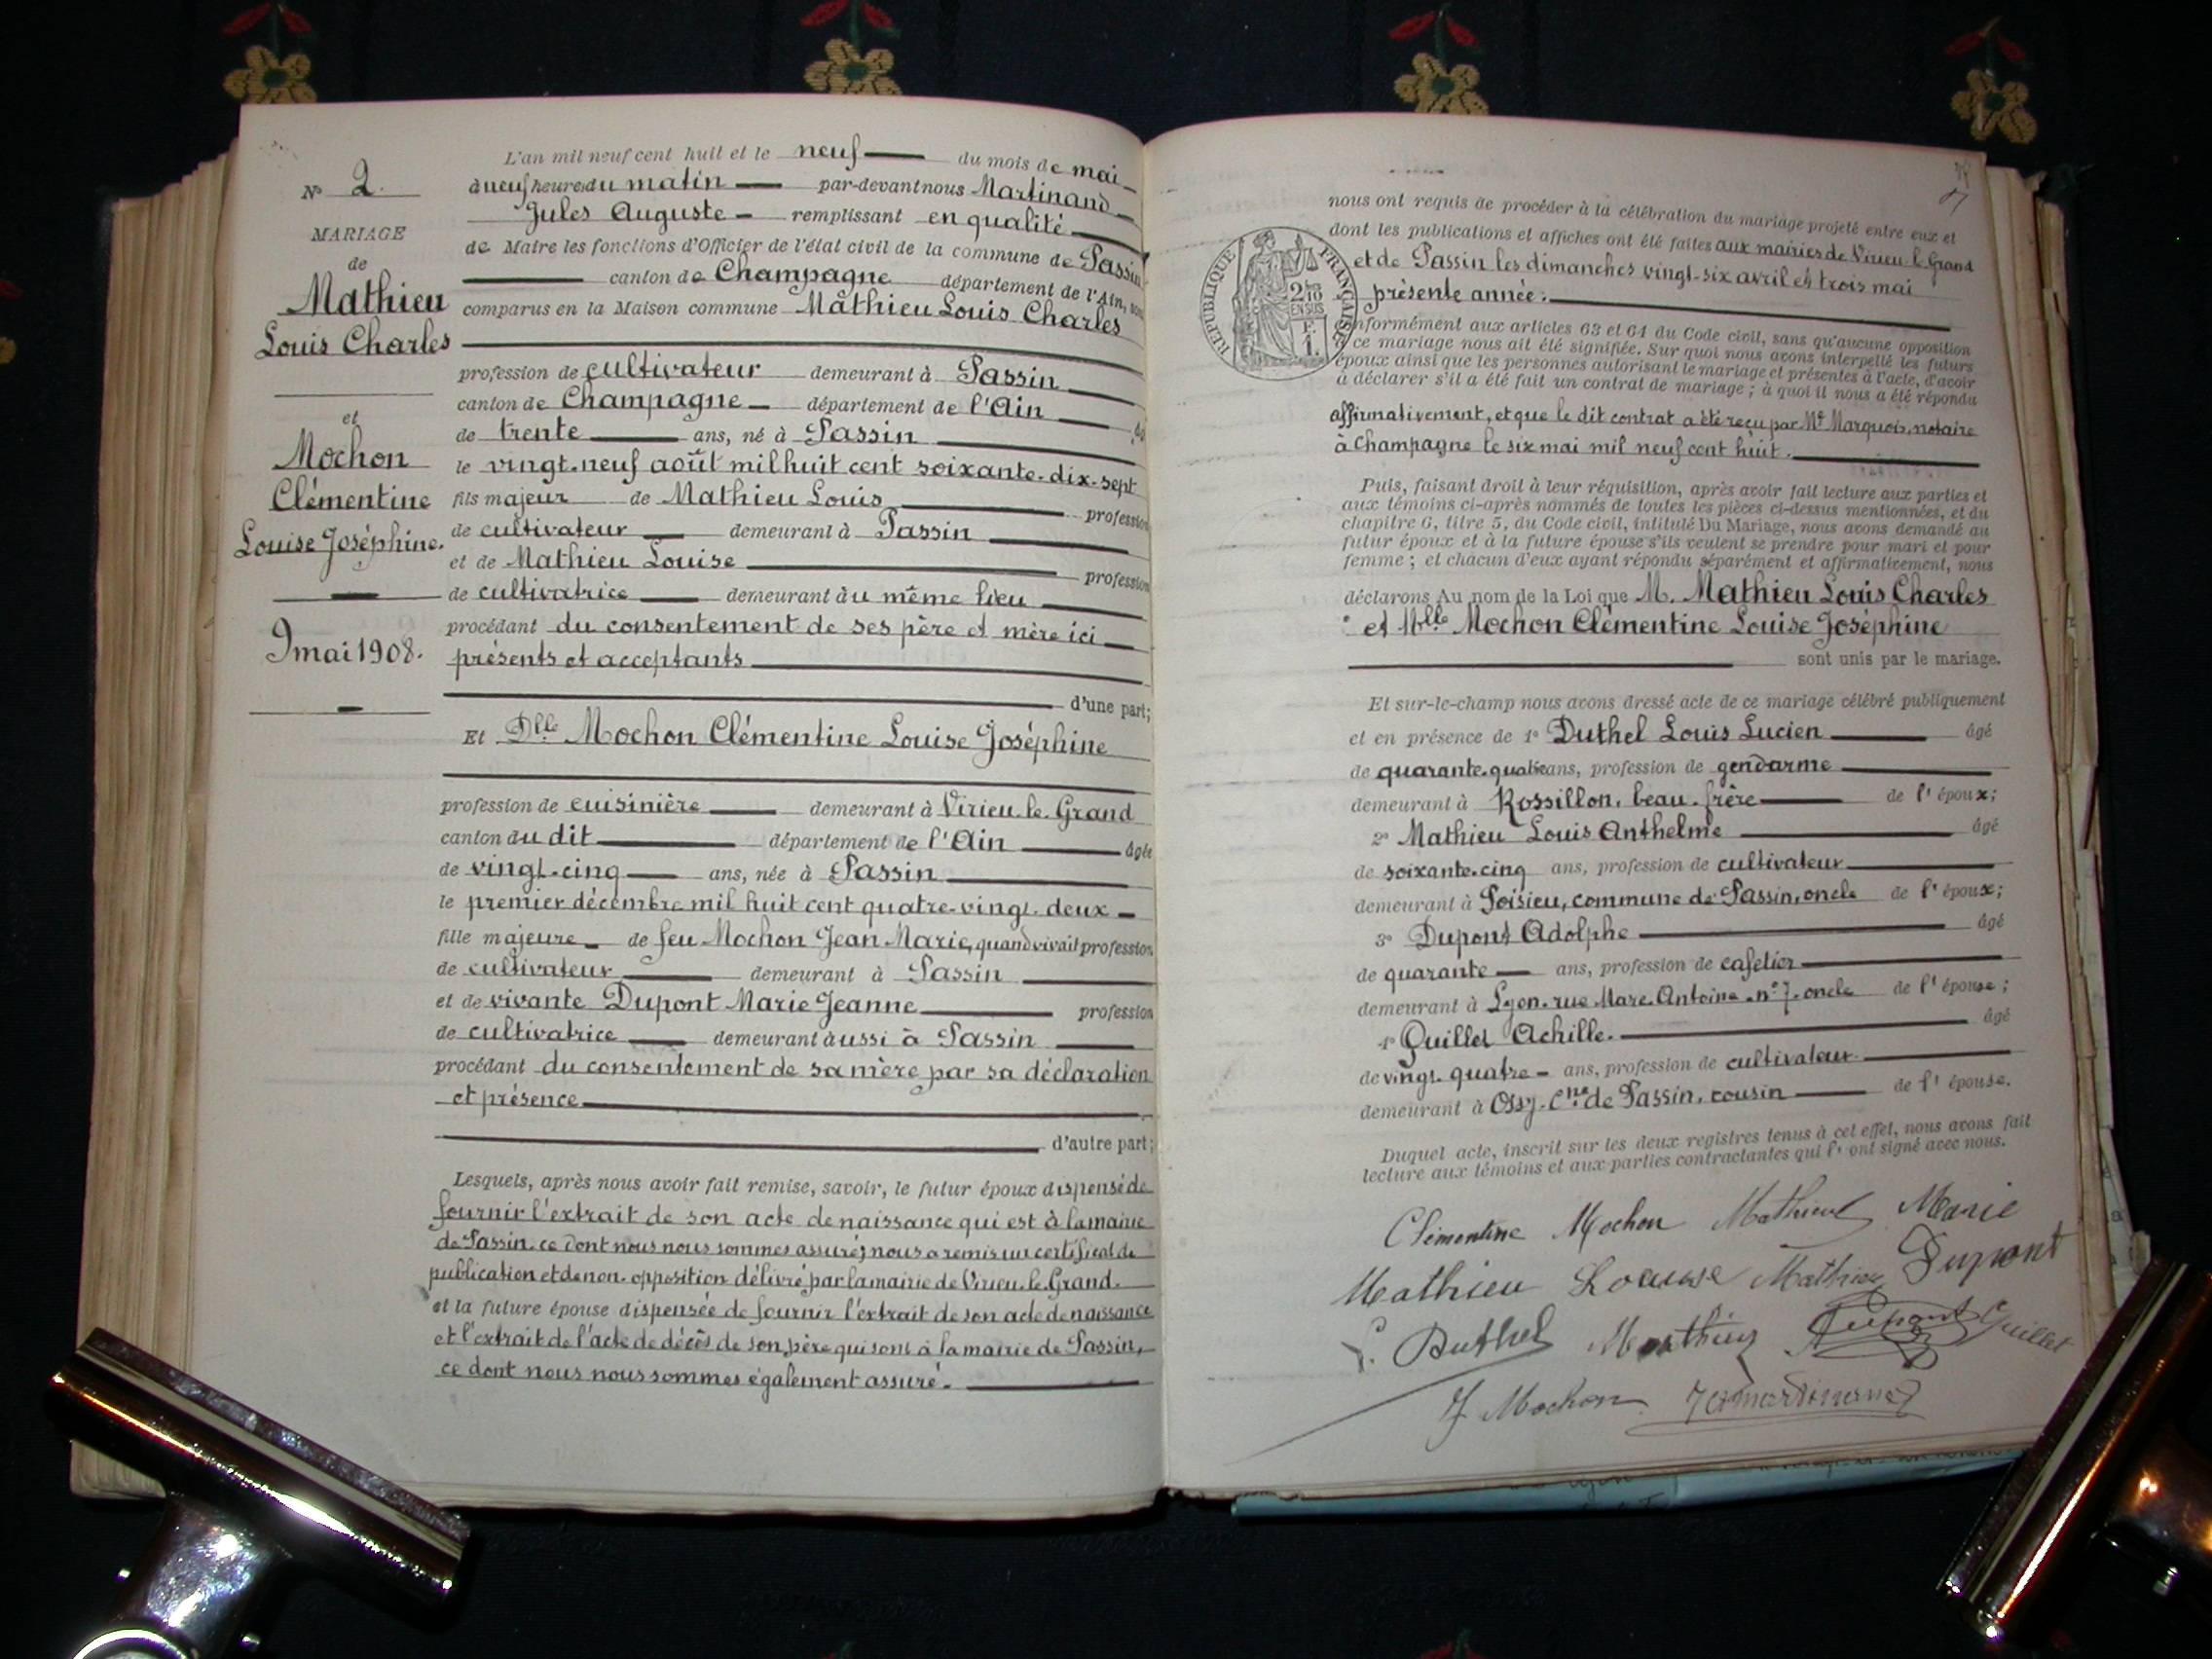 N° 2.
MARIAGE
de
Mathieu
Louis Charles
et
Mochon
Clémentine
Louise Joséphine.
9 mai 1908.
L'an mil neuf cent huit et le neuf du mois de mai
à neuf heures du matin par-devant nous Martinand
Jules Auguste remplissant en qualité
de Maire les fonctions d'Officier de l'état civil de la commune de Passin
canton de Champagne département de l'Ain, sont
comparus en la Maison commune Mathieu Louis Charles
profession de cultivateur demeurant à Passin
canton de Champagne département de l'Ain âgé
de trente ans, né à Passin
le vingt-neuf août mil huit cent soixante-dix-sept
fils majeur de Mathieu Louis profession
de cultivateur demeurant à Passin
et de Mathieu Louise profession
de cultivatrice demeurant au même lieu
procédant du consentement de ses père et mère ici
présents et acceptants
d'une part;
Et Dlle Mochon Clémentine Louise Joséphine
profession de cuisinière demeurant à Virieu-le-Grand
canton du dit département de l'Ain âgée
de vingt-cinq ans, née à Passin
le premier décembre mil huit cent quatre-vingt-deux
fille majeure de feu Mochon Jean Marie, quand vivait profession
de cultivateur demeurant à Passin
et de vivante Dupont Marie Jeanne profession
de cultivatrice demeurant aussi à Passin
procédant du consentement de sa mère par sa déclaration
et présence
d'autre part;
Lesquels, après nous avoir fait remise, savoir, le futur époux dispensé de
fournir l'extrait de son acte de naissance qui est à la mairie
de Passin, ce dont nous nous sommes assuré; nous a remis un certificat de
publication et de non-opposition délivré par la mairie de Virieu-le-Grand.
et la future épouse dispensée de fournir l'extrait de son acte de naissance
et l'extrait de l'acte de décès de son père qui sont à la mairie de Passin,
ce dont nous nous sommes également assuré.
nous ont requis de procéder à la célébration du mariage projeté entre eux et
dont les publications et affiches ont été faites aux mairies de Virieu-le-Grand
et de Passin les dimanches vingt-six avril et trois mai
présente année.
RÉPUBLIQUE FRANÇAISE
2/10
EN SUS
F.
1.
conformément aux articles 63 et 64 du Code civil, sans qu'aucune opposition
à ce mariage nous ait été signifiée. Sur quoi nous avons interpellé les futurs
époux ainsi que les personnes autorisant le mariage et présentes à l'acte, d'avoir
à déclarer s'il a été fait un contrat de mariage; à quoi il nous a été répondu
affirmativement, et que le dit contrat a été reçu par Me Marquois, notaire
à Champagne le six mai mil neuf cent huit.
Puis, faisant droit à leur réquisition, après avoir fait lecture aux parties et
aux témoins ci-après nommés de toutes les pièces ci-dessus mentionnées, et du
chapitre 6, titre 5, du Code civil, intitulé Du Mariage, nous avons demandé au
futur époux et à la future épouse s'ils veulent se prendre pour mari et pour
femme; et chacun d'eux ayant répondu séparément et affirmativement, nous
déclarons Au nom de la Loi que M. Mathieu Louis Charles
et Mlle Mochon Clémentine Louise Joséphine
sont unis par le mariage.
Et sur-le-champ nous avons dressé acte de ce mariage célébré publiquement
et en présence de 1° Duthel Louis Lucien âgé
de quarante-quatre ans, profession de gendarme
demeurant à Rossillon, beau-frère de l'époux;
2° Mathieu Louis Anthelme âgé
de soixante-cinq ans, profession de cultivateur
demeurant à Poisieu, commune de Passin, oncle de l'époux;
3° Dupont Adolphe âgé
de quarante ans, profession de cafetier
demeurant à Lyon, rue Marc-Antoine n° 7, oncle de l'épouse;
4° Quillet Achille. âgé
de vingt-quatre ans, profession de cultivateur
demeurant à Ossy, Cne de Passin, cousin de l'épouse.
Duquel acte, inscrit sur les deux registres tenus à cet effet, nous avons fait
lecture aux témoins et aux parties contractantes qui l'ont signé avec nous.
Clémentine Mochon Mathieu Marie
Mathieu Louise Mathieu Dupont
L. Duthel Mathieu A Dupont Quillet
J Mochon